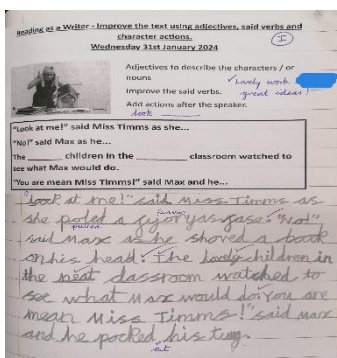 Reading as a Writer - Improve the text using adjectives, said verbs and
character actions.
I
Wednesday 31st January 2024
Adjectives to describe the characters / or
nouns
Lovely work
great ideas!
Improve the said verbs.
Add actions after the speaker.
look
"Look at me!" said Miss Timms as she...
"No!" said Max as he...
The ______ children in the ______ classroom watched to
see what Max would do.
"You are mean Miss Timms!" said Max and he...
"Look at me!" said Miss Timms as
she poled a fyoryas fase. "No!"
pulled furious
said Max as he shoved a book
on his head. The lovely children in
the neat classroom watched to
see what Max would do. You are
mean Miss Timms!" said Max
and he pocked his tung.
out